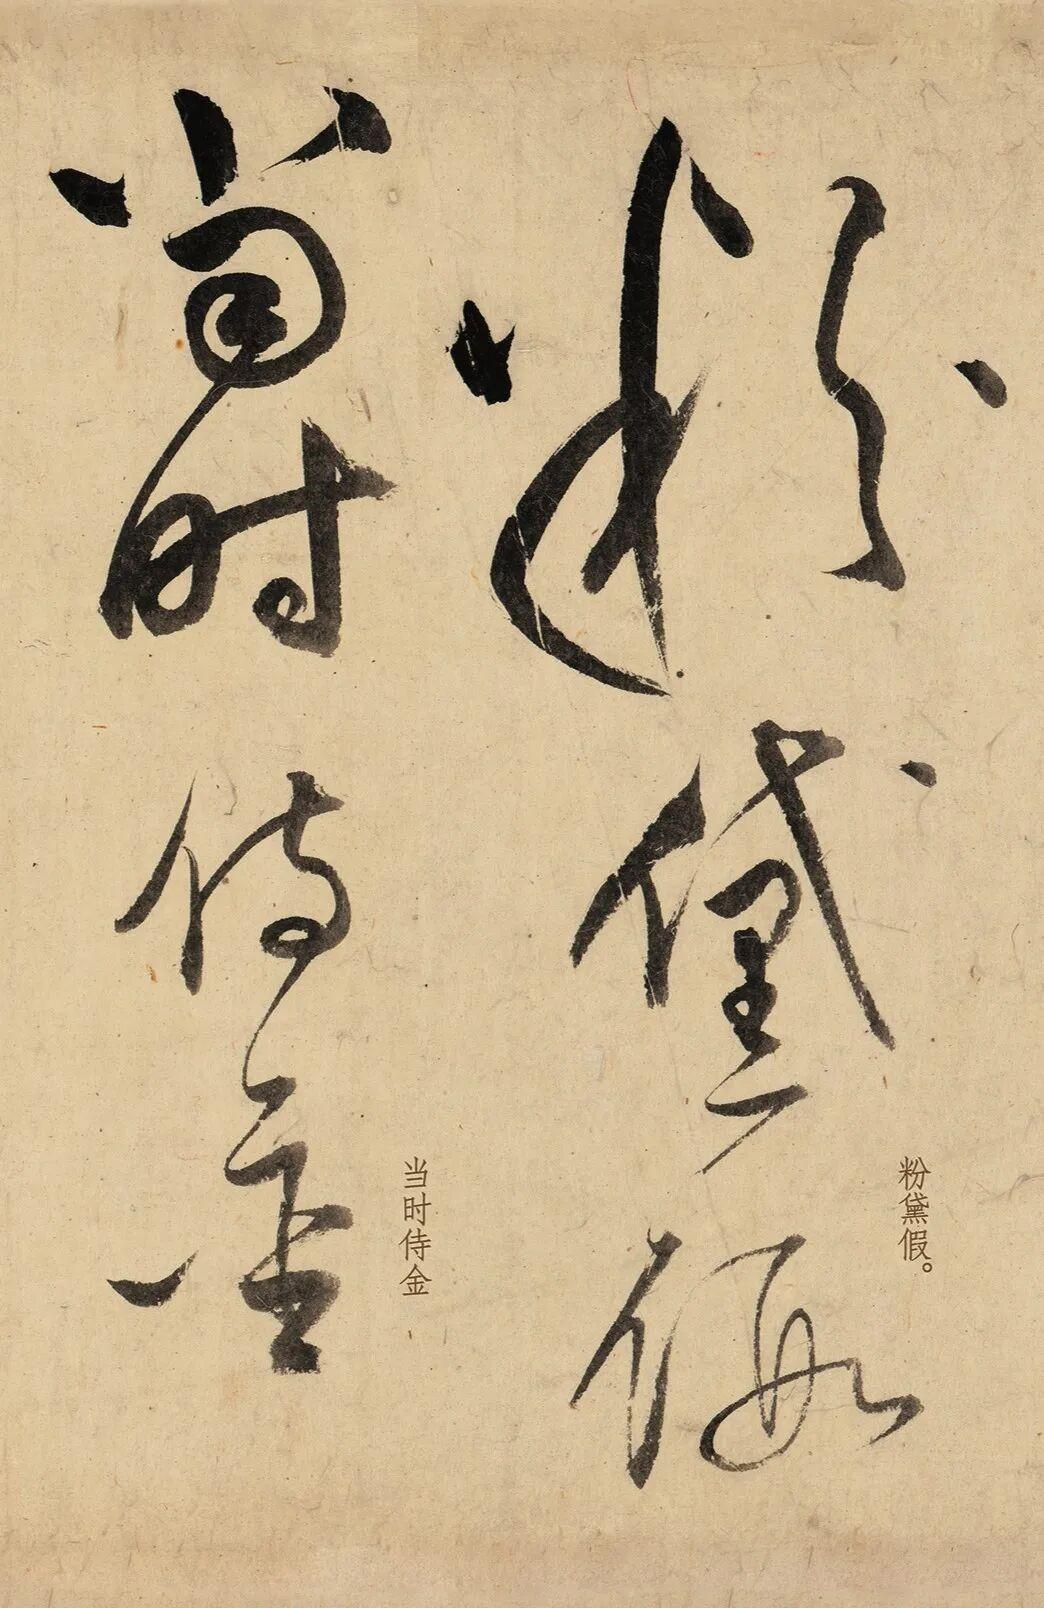 粉黛假
粉黛假。
當时侍金
当时侍金